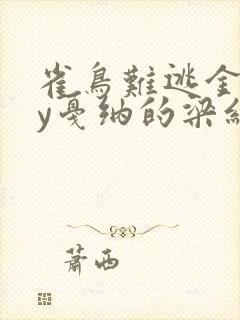 雀鳥難逃金
y戛纳的梁經
蕭西